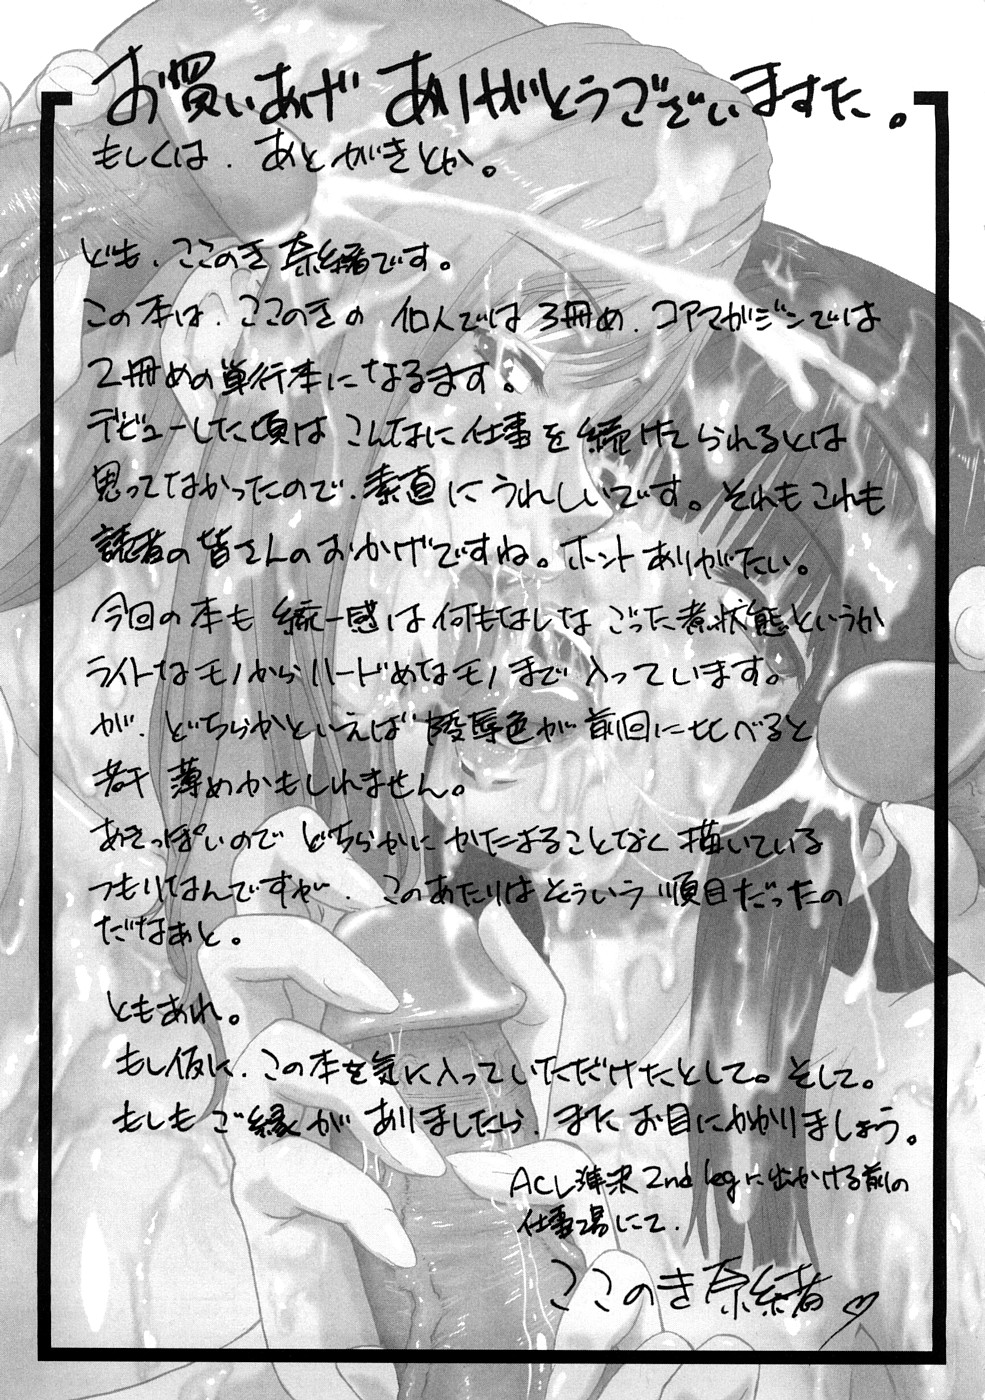 お買いあげ ありがとうございますた。
もしくは、あとがきとか。
ども、ここのき奈緒です。
この本は、ここのきの 個人では3冊め、コアマガジンでは
2冊めの単行本になるます。
デビューした頃は こんなに仕事を続けてられるとは
思ってなかったので、素直にうれしいです。それもこれも
読者の皆さんのおかげですね。ホントありがたい。
今回の本も 統一感は何もはしな ごった煮状態というか
ライトなモノからハードめなモノまで 入っています。
が、どちらかといえば 陵辱色が前回に比べると
若干 薄めかもしれません。
あきっぽいので どちらかにかたまることなく描いている
つもりなんですが、このあたりはそういう順目だったの
だなぁと。
ともあれ。
もし仮に、この本を気に入っていただけたとして。そして。
もしもご縁がありましたら、またお目にかかりましょう。
ACL 浦末 2nd legに出かける前の
仕事場にて、
ここのき奈緒